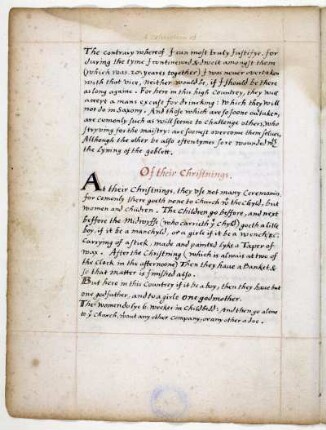 A description of
The contrary whereof I can most truly Justifye, for
during the tyme I continewed & dwelt amongst them
(which was 20 yeares together) I was never overtaken
with that Vice, Neither would be, if I should be there
as long againe. For here in this high Country, they will
accept a mans excuse for drincking: Which they will
not do in Saxony. And those which are so soone overtaken,
are comonly such as will seeme to challenge others, Who
stryving for the maistry: are soonest overcome them selves,
Although the other be also oftentymes sore wounded wt
the lyning of the goblett.
Of their Christnings.
At their Christnings, they use not many Ceremonies,
for comonly there goeth none to Church wt the Chyld, but
women and children. The Children go before, and next
before the Midwiffe (who carrieth ye Chyld) goeth a litle
boy, if it be a manchyld, or a girle if it be a wenche:
Carrying of a stick, made and painted lyke a Taper of
wax. After the Christning (which is alwaies at two of
the Clock in the afternoone) Then they have a Banket &
so that matter is finished also.
But here in this Countrey if it be a boy, then they have but
one godfather, and to a girle one godmother.
The women do lye 6: weekes in Childbedd: And then go alone
to ye Church, wthout any other Company, or any other a doe.